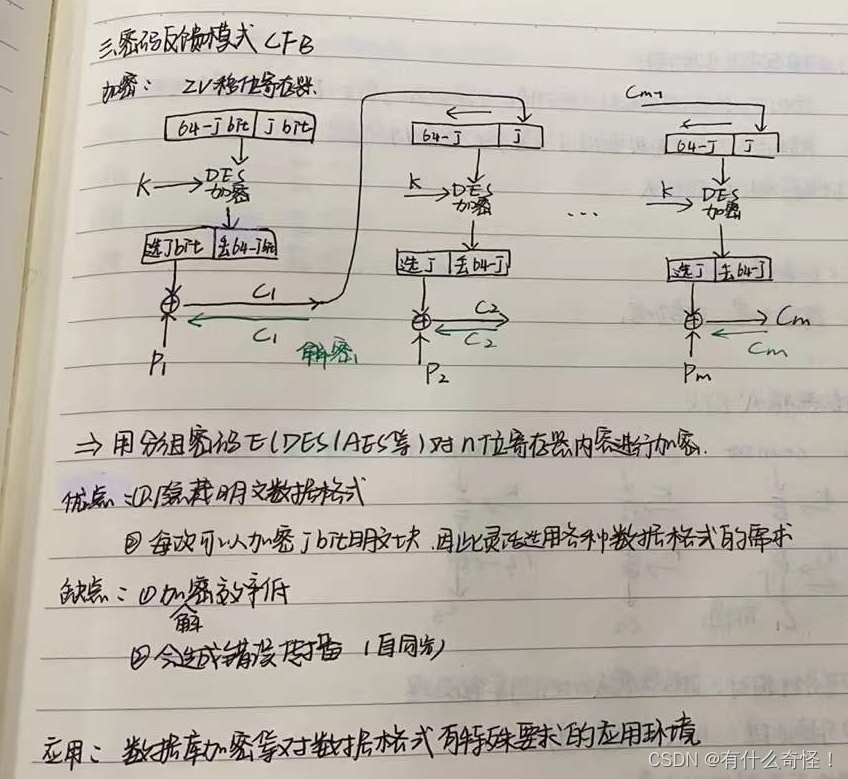 三.密码反馈模式 CFB
加密： IV移位寄存器.
64-Jbit Jbit
64-J J
Cm-1
64-J J
K DES
加密
K DES
加密
...
K DES
加密
选Jbit 丢64-Jbit
选J 丢64-J
选J 丢64-J
C1
C1
解密
C2
C2
Cm
Cm
P1
P2
Pm
⇒ 用分组密码E(DES/AES等)对n位寄存器内容进行加密.
优点：①隐藏明文数据格式
② 每次可以加密Jbit明文块.因此灵活适用各种数据格式的需求
缺点：①加密效率低
解
② 会造成错误传播 (自同步)
应用：数据库加密等对数据格式有特殊要求的应用环境
CSDN @有什么奇怪！